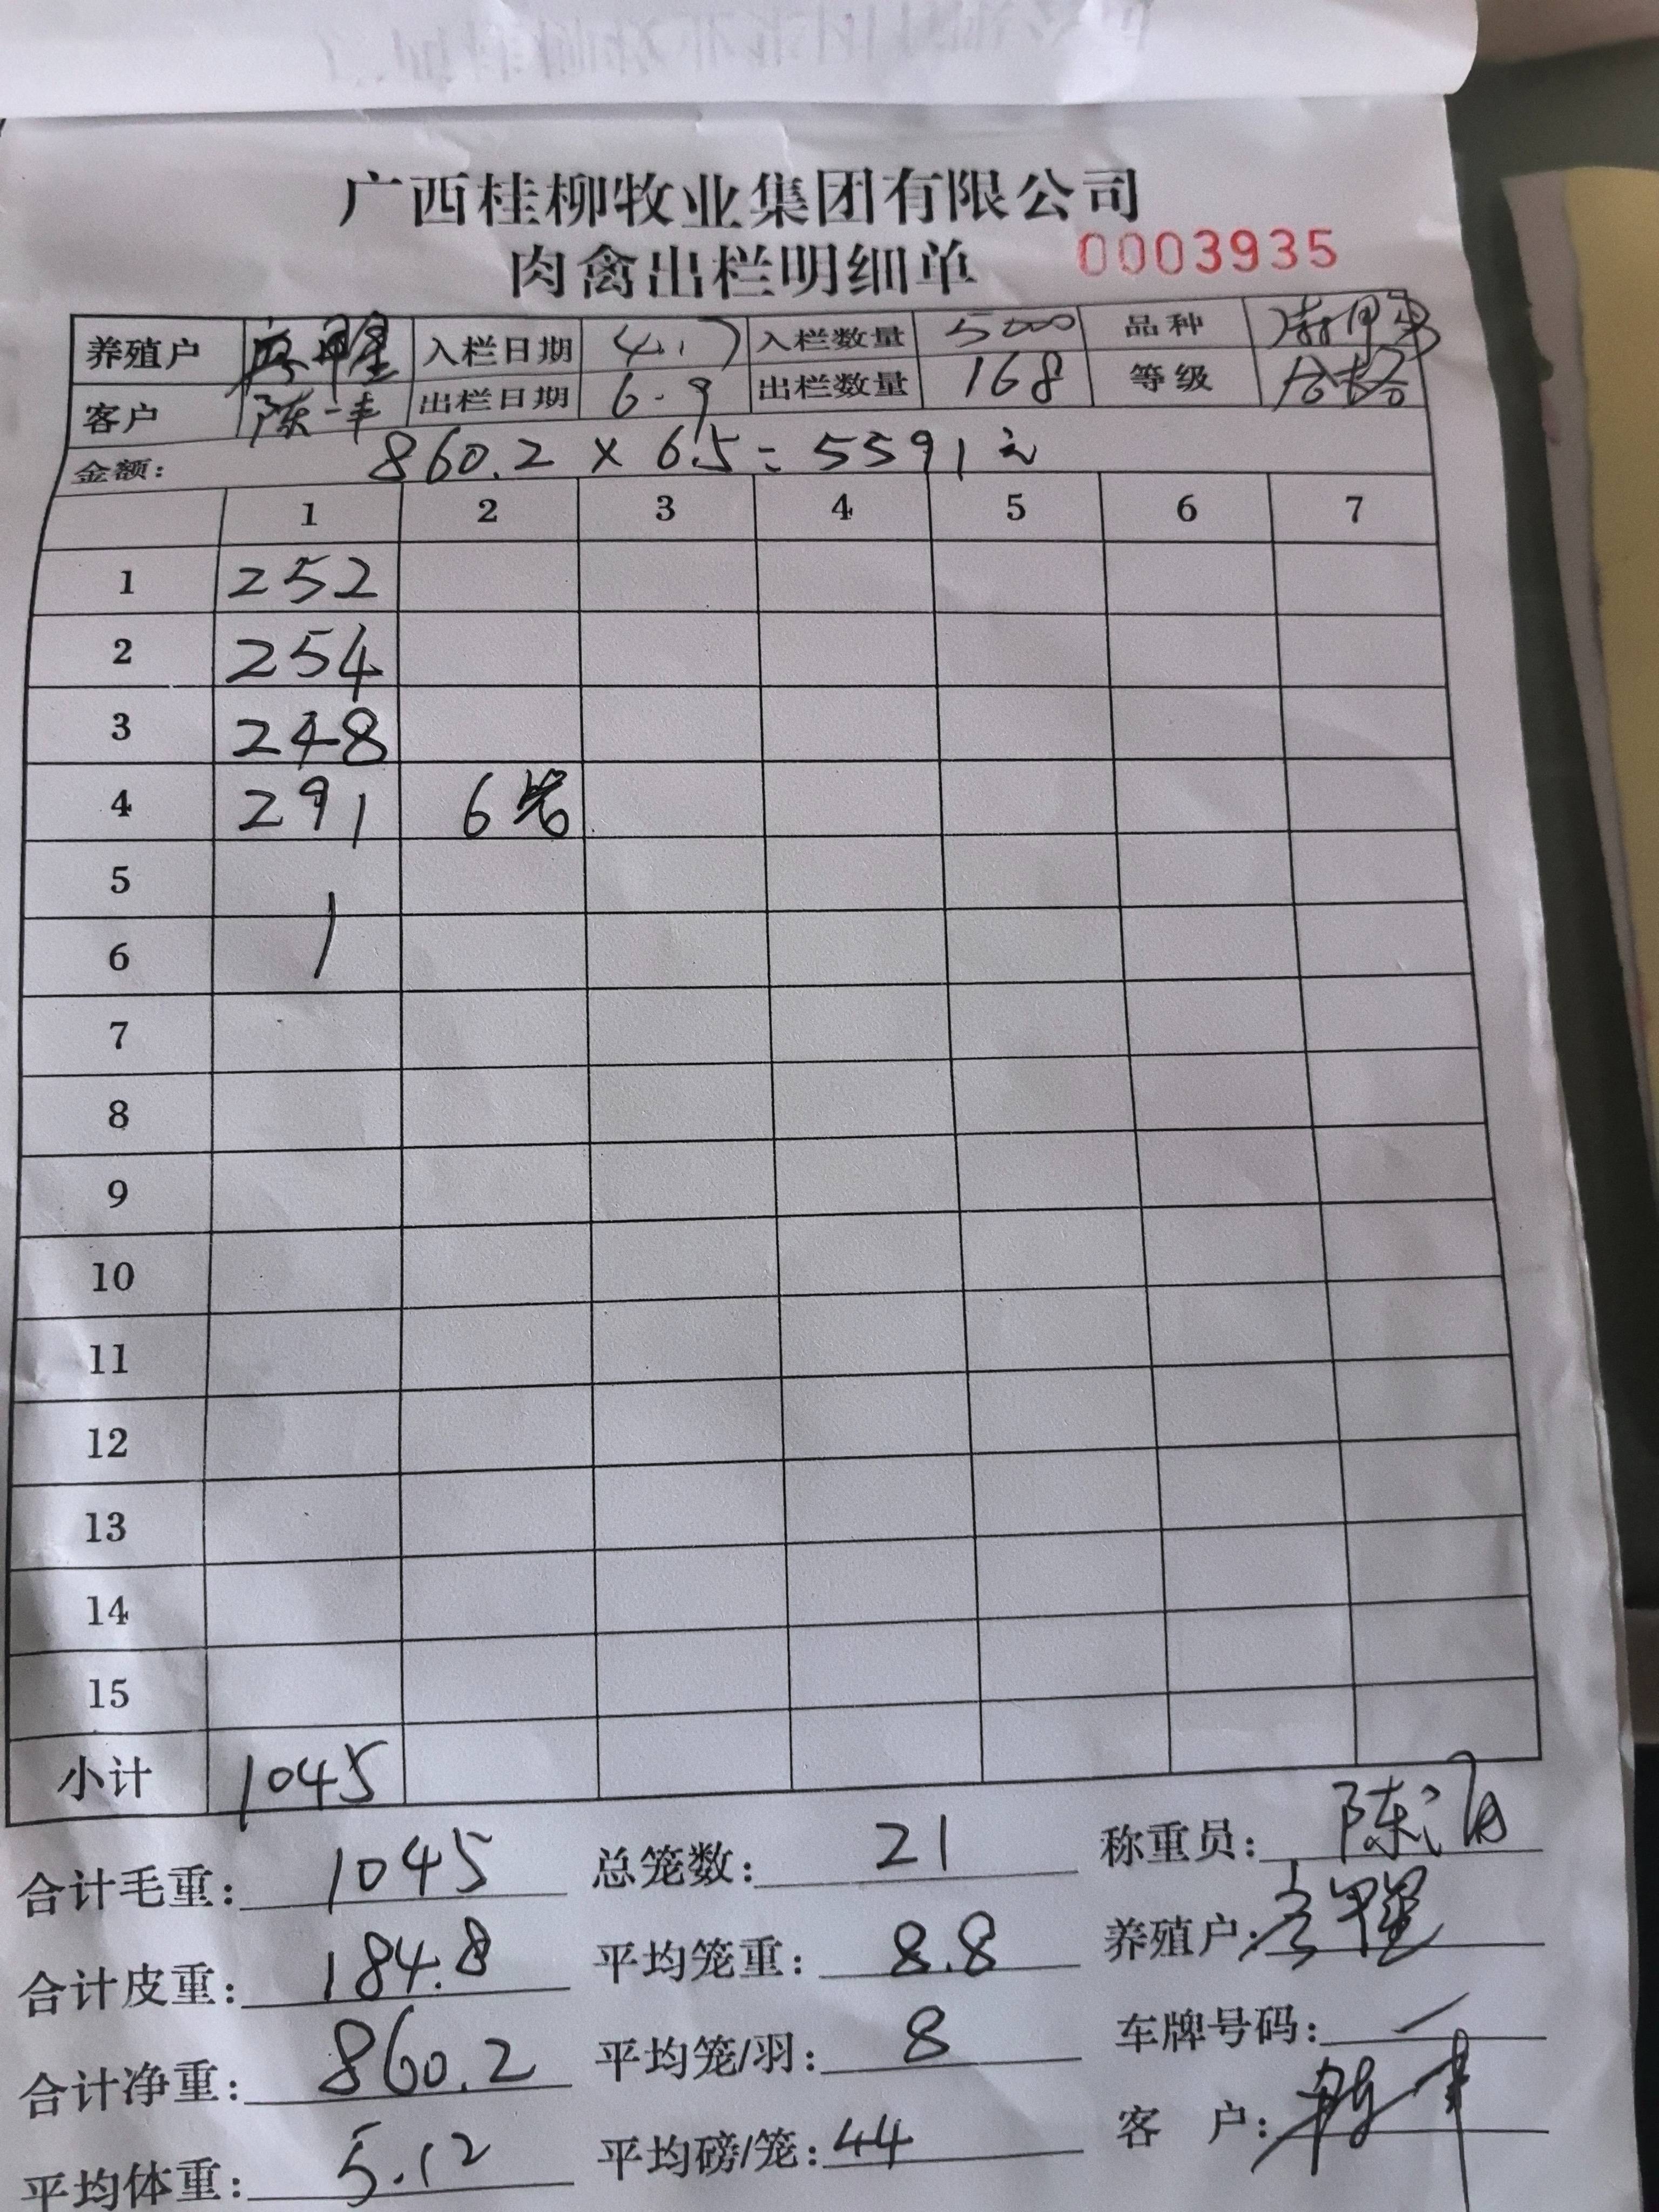 广西桂柳牧业集团有限公司
肉禽出栏明细单 0003935
养殖户 入栏日期 4.17 入栏数量 5000 品种
客户 陈一丰 出栏日期 6.9 出栏数量 168 等级 合格
金额: 860.2 × 6.5 = 5591元
1 2 3 4 5 6 7
1 252
2 254
3 248
4 291 6笼
5
6
7
8
9
10
11
12
13
14
15
小计 1045
合计毛重: 1045 总笼数: 21 称重员:
合计皮重: 184.8 平均笼重: 8.8 养殖户:
合计净重: 860.2 平均笼/羽: 8 车牌号码:
平均体重: 5.12 平均磅/笼: 44 客 户: